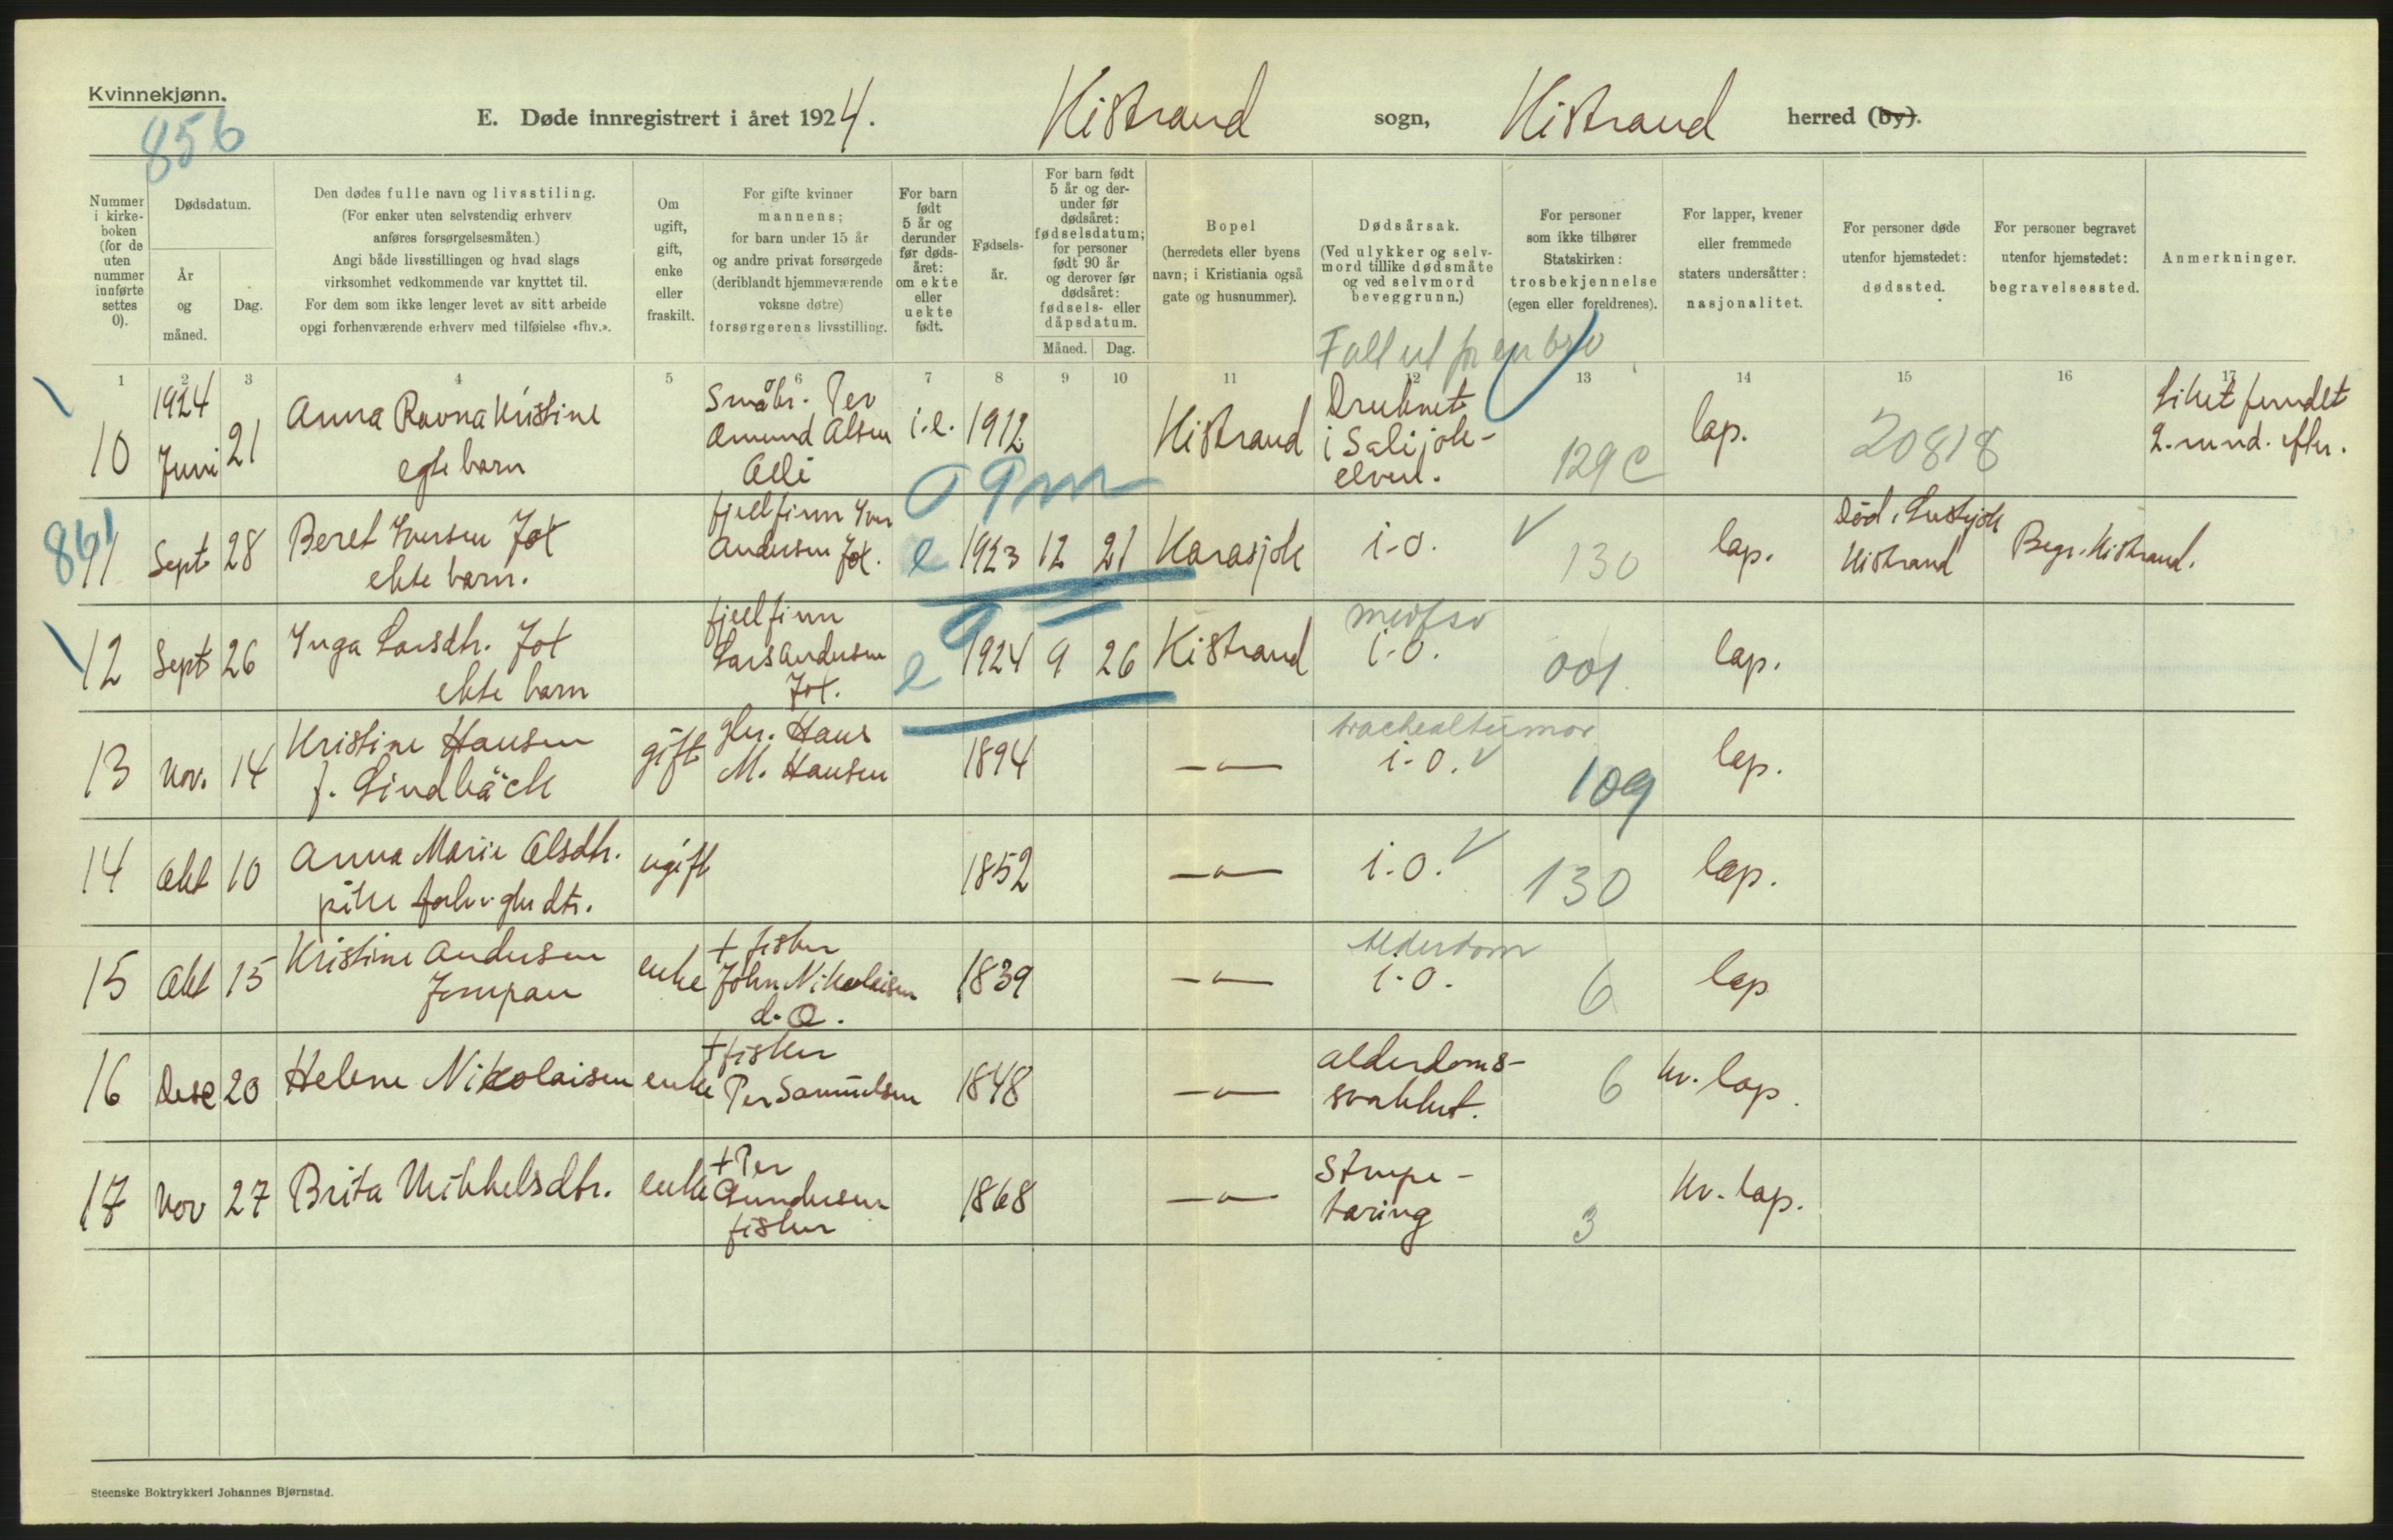 Kvinnekjønn.
856
E. Døde innregistrert i året 1924. Kistrand sogn, Kistrand herred (by).
Nummer i kirke-boken (for de uten nummer innførte settes 0).
Dødsdatum.
År og måned.
Dag.
Den dødes fulle navn og livsstiling.
(For enker uten selvstendig erhverv
anføres forsørgelsesmåten.)
Angi både livsstillingen og hvad slags
virksomhet vedkommende var knyttet til.
For dem som ikke lenger levet av sitt arbeide
opgi forhenværende erhverv med tilføielse «fhv.».
Om ugift, gift, enke eller fraskilt.
For gifte kvinner
mannens;
for barn under 15 år
og andre privat forsørgede
(deriblandt hjemmeværende
voksne døtre)
forsørgerens livsstilling.
For barn født 5 år og derunder før døds-året: om ekte eller uekte født.
Fødsels-år.
For barn født 5 år og der-under før dødsåret: fødselsdatum; for personer født 90 år og derover før dødsåret: fødsels- eller dåpsdatum.
Måned. Dag.
Bopel
(herredets eller byens
navn; i Kristiania også
gate og husnummer).
Dødsårsak.
(Ved ulykker og selv-
mord tillike dødsmåte
og ved selvmord
beveggrunn.)
For personer
som ikke tilhører
Statskirken:
trosbekjennelse
(egen eller foreldrenes).
For lapper, kvener
eller fremmede
staters undersåtter:
nasjonalitet.
For personer døde
utenfor hjemstedet:
dødssted.
For personer begravet
utenfor hjemstedet:
begravelsessted.
Anmerkninger.
Falt ut fr en bro
1 2 3 4 5 6 7 8 9 10 11 12 13 14 15 16 17
10 1924 Juni 21 Anna Ravna Kristine
egte barn
Småbr. Per
Amund Olsen
i.e. 1912 Kistrand
Druknet
i Salijok-
elven.
129 c lap. 20818
Liket fundet
2. mnd. efter.
0 9 m
861
11 Sept 28 Beret Iversen Jot
ekte barn.
fjellfinn Iver
Andersen Jot.
e 1923 12 21 Karasjok i-o. V 130 lap.
Død i
Kistrand
Begr. Kistrand.
12 Sept 26 Inga Larsdtr. Jot
ekte barn
fjellfinn
Lars Andersen
Jot.
e 1924 9 26 Kistrand
medfsv
i-o. 001 lap.
13 Nov. 14 Kristine Hansen
f. Lindbäck
gift gbr. Hans
M. Hansen
1894 —"—
trachealtumor
i-o. V 109 lap.
14 Okt 10 Anna Marie Olsdtr.
pike
ugift 1852 —"— i.o. V 130 lap.
15 Okt 15 Kristine Andersen
Jompan
enke + fisker
John Nikolaisen
d.O.
1839 —"—
Alderdom
i-o. 6 lap
16 Dese 20 Helene Nikolaisen enke
+ fisker
Per Samuelsen
1848 —"—
alderdoms-
svakhet.
6 kv. lap.
17 Nov 27 Brita Mikkelsdtr. enke
+ Per
Gundersen
fisker
1868 —"—
Strupe-
tæring
3 kv. lap.
Steenske Boktrykkeri Johannes Bjørnstad.